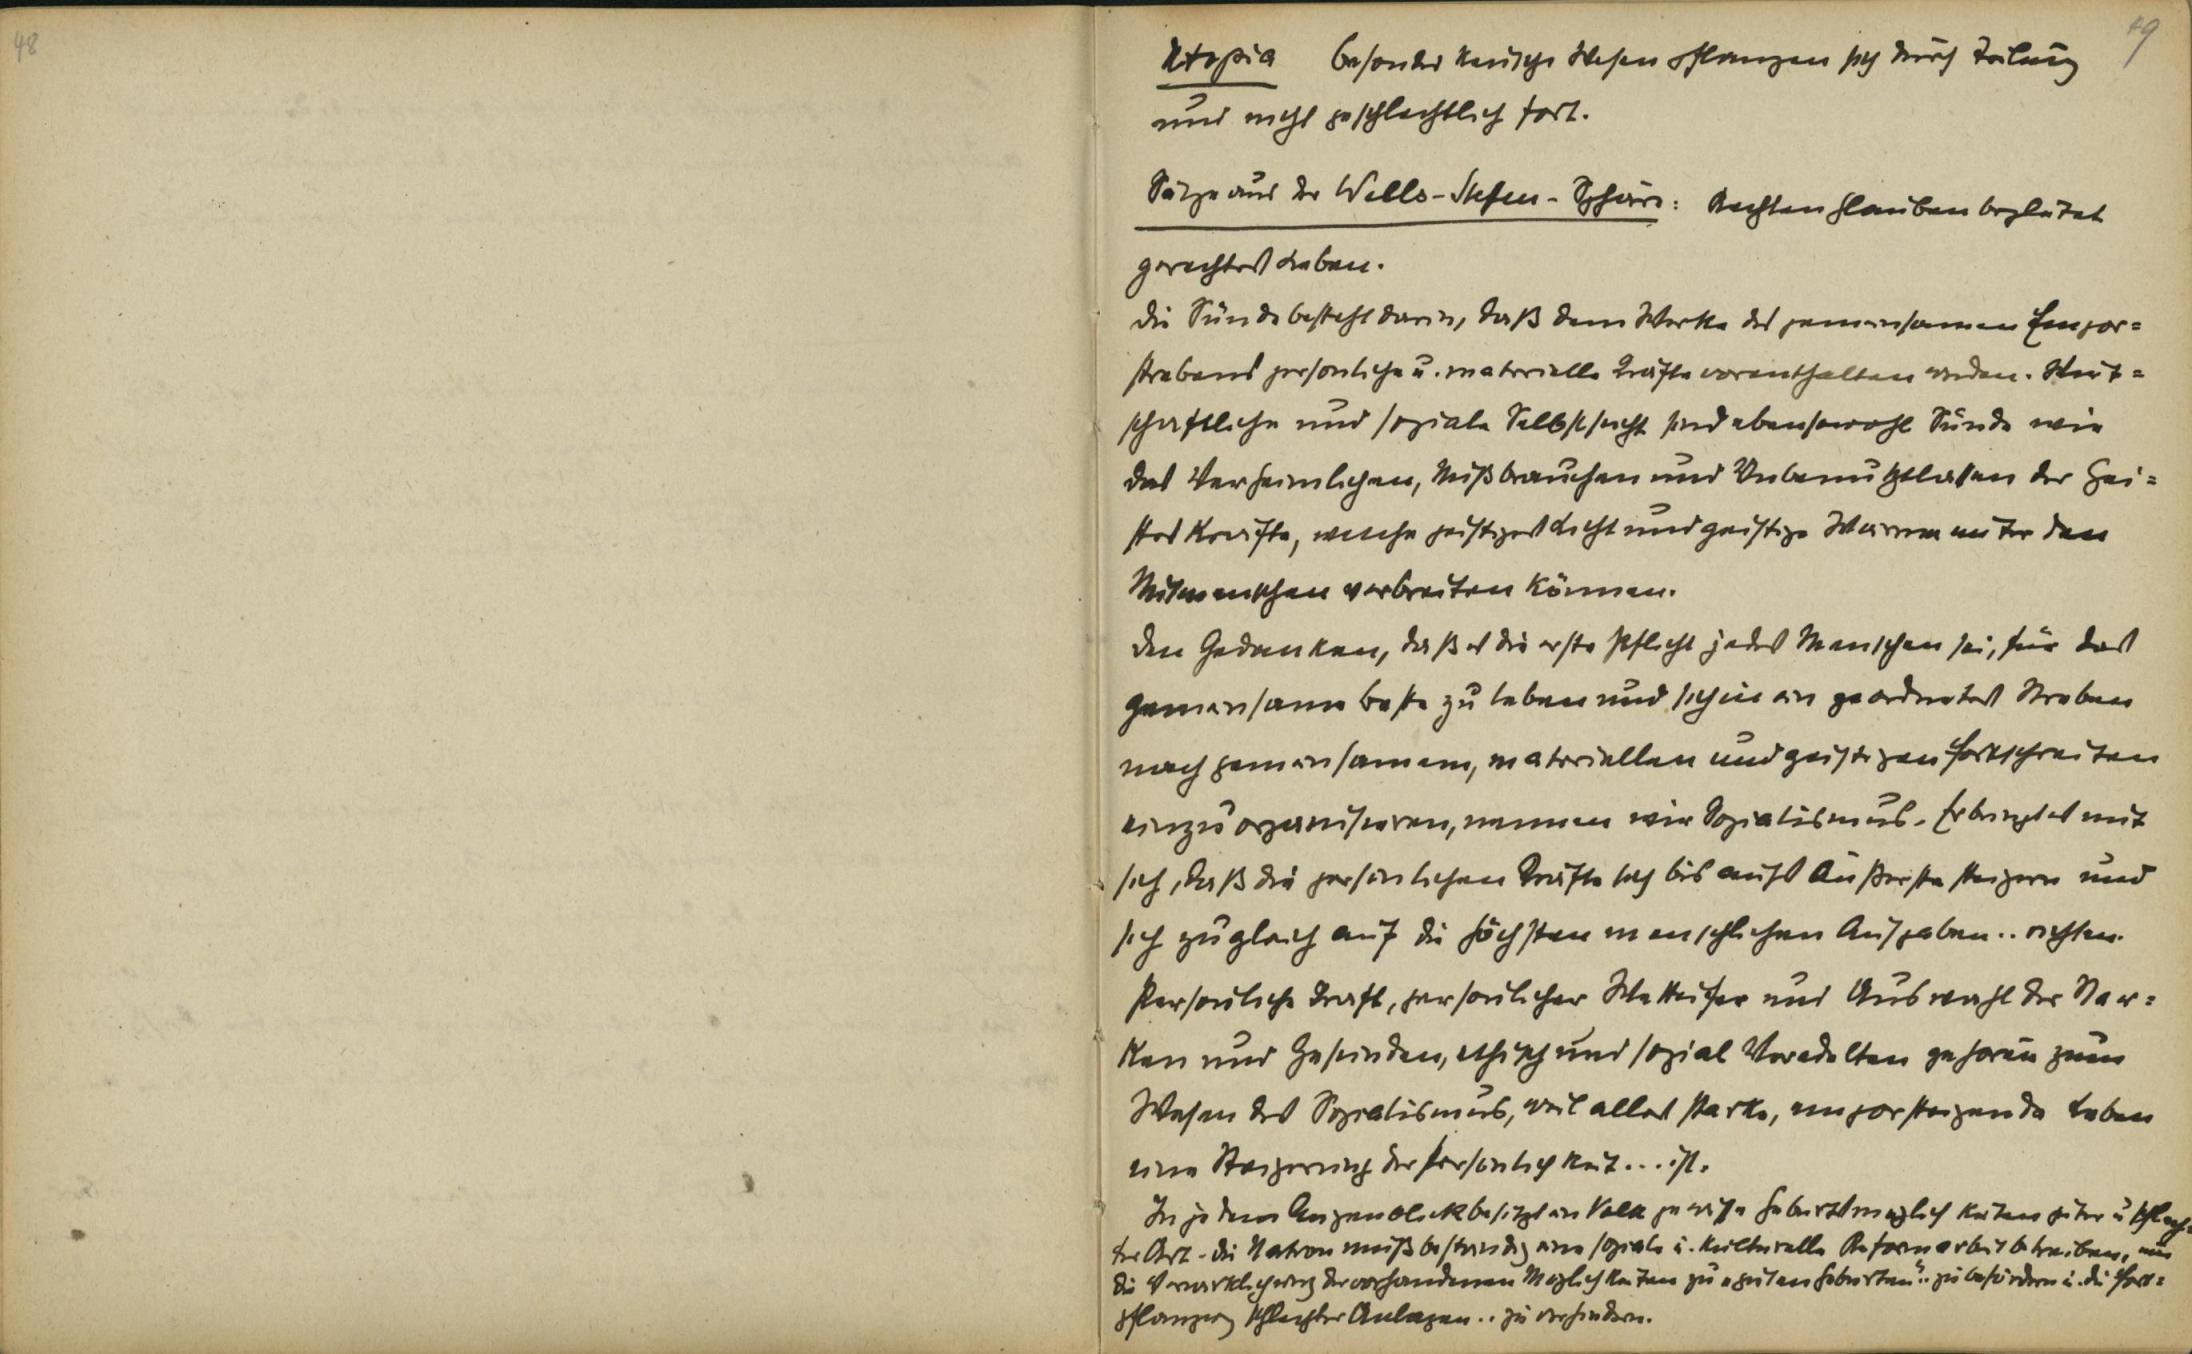 48
49
Utopia besonders keusche Wesen pflanzen sich durch Teilung
und nicht geschlechtlich fort.
Sätze aus der Wells-Steffen-Sphäre: Rechten Glauben begleitet
gerechtes Leben.
Die Sünde besteht darin, daß dem Werke des gemeinsamen Empor=
strebens persönliche u. materielle Kräfte vorenthalten werden. Wirt=
schaftliche und soziale Selbstsucht sind ebensowohl Sünde wie
das Verheimlichen, Mißbrauchen und Unbenutztlassen der Gei=
stes Kräfte, welche geistiges Licht und geistige Wärme unter den
Mitmenschen verbreiten können.
Den Gedanken, daß es die erste Pflicht jedes Menschen sei, für das
gemeinsame beste zu leben und sich in ein geordnetes Streben
nach gemeinsamem, materiellen und geistigen Fortschreiten
einzuorganisieren, nennen wir Sozialismus. Er bringt es mit
sich, daß die persönlichen Kräfte sich bis aufs Äußerste steigern und
sich zugleich auf die höchsten menschlichen Aufgaben .. richten.
Persönliche Kraft, persönlicher Wetteifer und Auswahl der Star=
ken und Gesunden, ethisch und sozial Veredelten gehören zum
Wesen des Sozialismus, weil alles starke, emporsteigende Leben
eine Steigerung der Persönlichkeit ... ist.
In jedem Augenblick besitzt ein Volk gewisse Geburtsmöglichkeiten guter u. schlech=
ter Art - die Nation muß beständig eine soziale u. kulturelle Reformarbeit betreiben, um
die Verwirklichung der vorhandenen Möglichkeiten zu „guten Geburten“.. zu befördern u. die Fort=
pflanzung schlechter Anlagen .. zu verhindern.